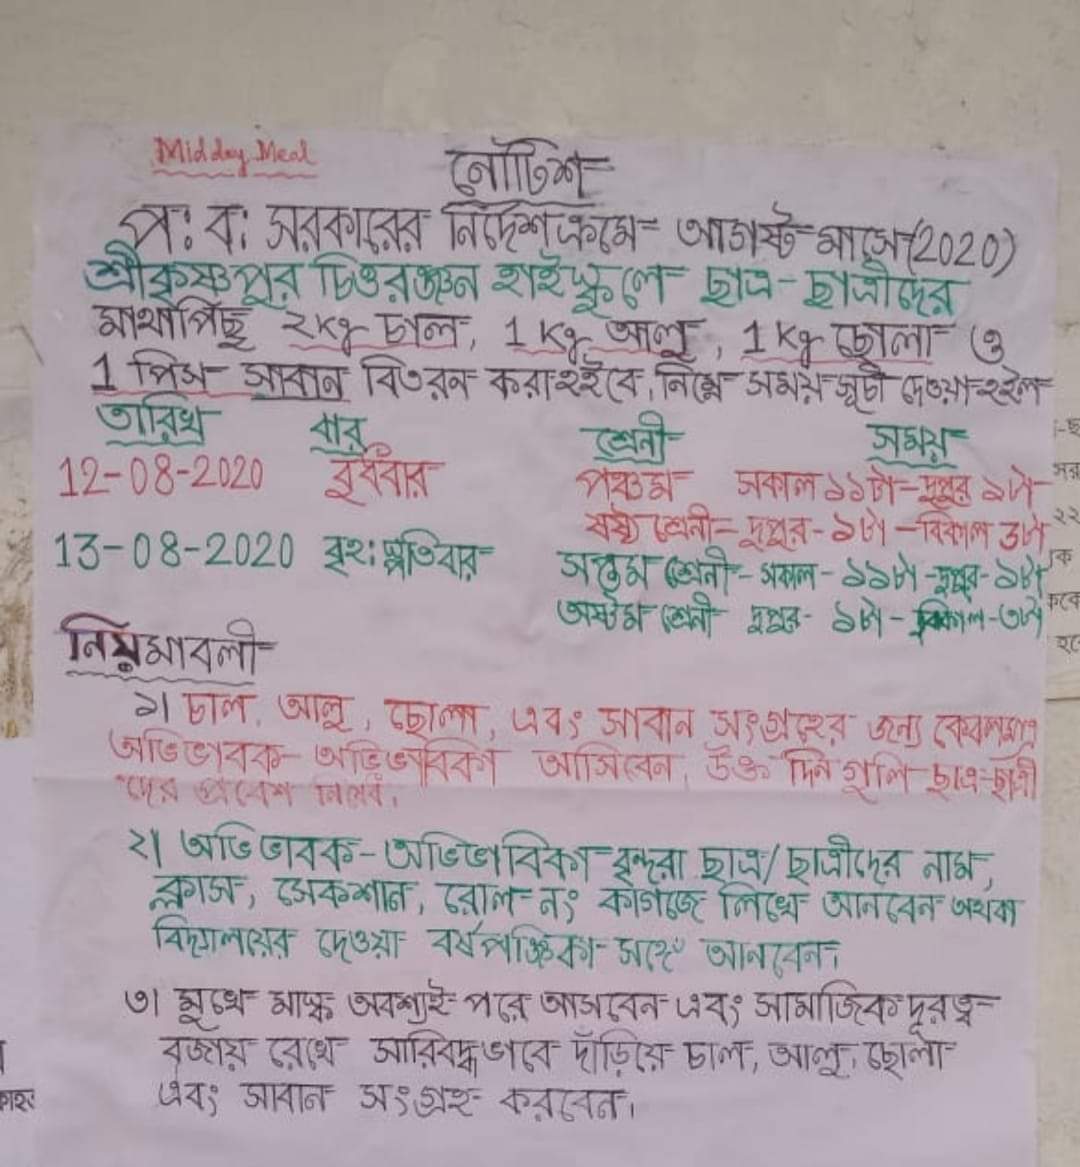 Midday Meal
নোটিশ
প: ব: সরকারের নির্দেশক্রমে আগষ্ট মাসে (2020)
শ্রীকৃষ্ণপুর চিত্তরঞ্জন হাইস্কুলে ছাত্র-ছাত্রীদের
মাথাপিছু 2kg চাল, 1 kg আলু, 1 kg ছোলা ও
1 পিস সাবান বিতরন করা হইবে, নিম্নে সময় সূচী দেওয়া হইল
তারিখ বার শ্রেনী সময়
12-08-2020 বুধবার পঞ্চম সকাল ১১টা - দুপুর ১টা
ষষ্ঠ শ্রেনী - দুপুর - ১টা - বিকাল ৩টা
13-08-2020 বৃহ:স্পতিবার সপ্তম শ্রেনী - সকাল - ১১টা - দুপুর - ১টা
অষ্টম শ্রেনী দুপুর - ১টা - বিকাল - ৩টা
নিয়মাবলী
১। চাল, আলু, ছোলা, এবং সাবান সংগ্রহের জন্য কেবলমাত্র
অভিভাবক-অভিভাবিকা আসিবেন, উক্ত দিন গুলি ছাত্র-ছাত্রী
দের প্রবেশ নিষেধ,
২। অভিভাবক-অভিভাবিকা বৃন্দরা ছাত্র/ছাত্রীদের নাম,
ক্লাস, সেকশান, রোল নং কাগজে লিখে আনবেন অথবা
বিদ্যালয়ের দেওয়া বর্ষপঞ্জিকা সঙ্গে আনবেন,
৩। মুখে মাস্ক অবশ্যই পরে আসবেন এবং সামাজিক দূরত্ব
বজায় রেখে সারিবদ্ধ ভাবে দাঁড়িয়ে চাল, আলু, ছোলা
এবং সাবান সংগ্রহ করবেন,